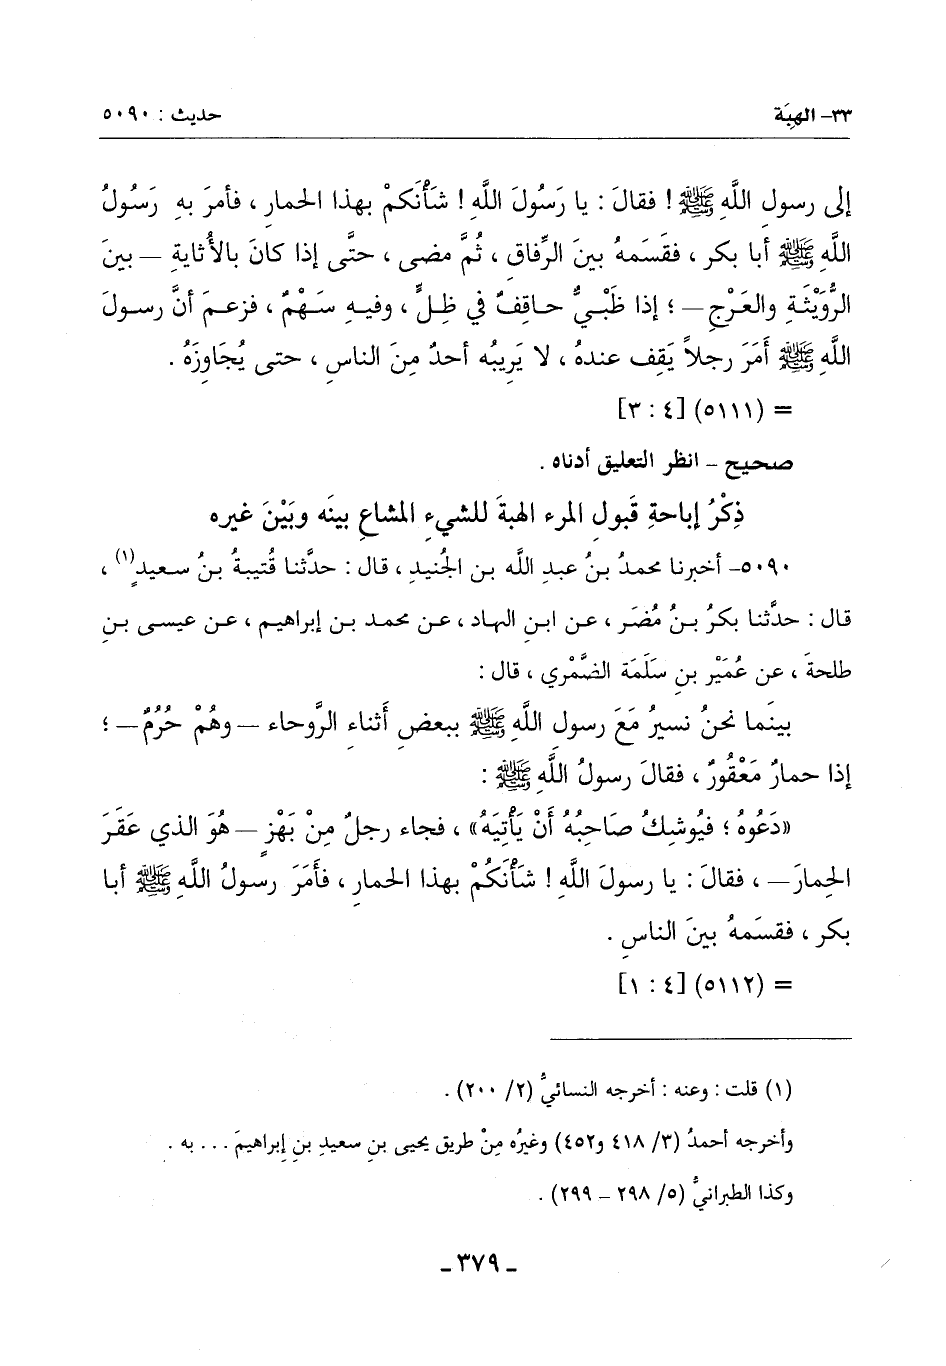 ٣٣- الهِبَة
حديث : ٥٠٩٠
إلى رسولِ اللَّهِ ﷺ ! فقالَ : يا رَسُولَ اللَّهِ ! شأْنَكمْ بهذا الحمارِ ، فأمرَ بهِ رَسُولُ
اللَّهِ ﷺ أبا بكر ، فقَسَمهُ بينَ الرِّفاقِ ، ثُمَّ مضى ، حتَّى إذا كانَ بالأُثايةِ – بينَ
الرُّوَيْثَةِ والعَرْجِ – ؛ إذا ظَبْيٌّ حاقِفٌ في ظِلٍّ ، وفيهِ سَهْمٌ ، فزعمَ أنَّ رسولَ
اللَّهِ ﷺ أَمَرَ رجلاً يَقِف عندهُ ، لا يَرِيبُه أحدٌ مِنَ الناسِ ، حتى يُجَاوِزَهُ .
= (٥١١١) [٤ : ٣]
صحيح – انظر التعليق أدناه .
ذِكْرُ إباحةِ قَبولِ المرءِ الهبةَ للشيءِ المشاعِ بينَه وبَيْنَ غيرِه
٥٠٩٠- أخبرنا محمدُ بنُ عبدِ اللَّه بن الجُنيدِ ، قال : حدَّثنا قُتيبةُ بنُ سعيدٍ(١) ،
قال : حدَّثنا بكرُ بنُ مُضَر ، عن ابنِ الهاد ، عن محمدِ بن إبراهيم ، عن عيسى بنِ
طلحةَ ، عن عُمَيْرِ بنِ سَلَمَة الضَّمْري ، قال :
بينَما نحنُ نسيرُ مَعَ رسولِ اللَّهِ ﷺ ببعضِ أَثناءِ الرَّوحاء – وهُمْ حُرُمٌ – ؛
إذا حمارٌ مَعْقُورٌ ، فقالَ رسولُ اللَّهِ ﷺ :
«دَعُوهُ ؛ فيُوشِكُ صَاحِبُهُ أَنْ يَأْتِيَهُ» ، فجاء رجلٌ مِنْ بَهْزٍ – هُوَ الذي عَقَرَ
الحِمارَ – ، فقالَ : يا رسولَ اللَّهِ ! شأْنَكُمْ بهذا الحمارِ ، فأَمَرَ رسولُ اللَّهِ ﷺ أبا
بكر ، فقسَمهُ بينَ الناسِ .
= (٥١١٢) [٤ : ١]
(١) قلت : وعنه : أخرجه النسائيُّ (٢/ ٢٠٠) .
وأخرجه أحمدُ (٣/ ٤١٨ و٤٥٢) وغيرُه مِنْ طريق يحيى بنِ سعيدِ بنِ إبراهيمَ ... به .
وكذا الطبرانيُّ (٥/ ٢٩٨ – ٢٩٩) .
- ٣٧٩ -